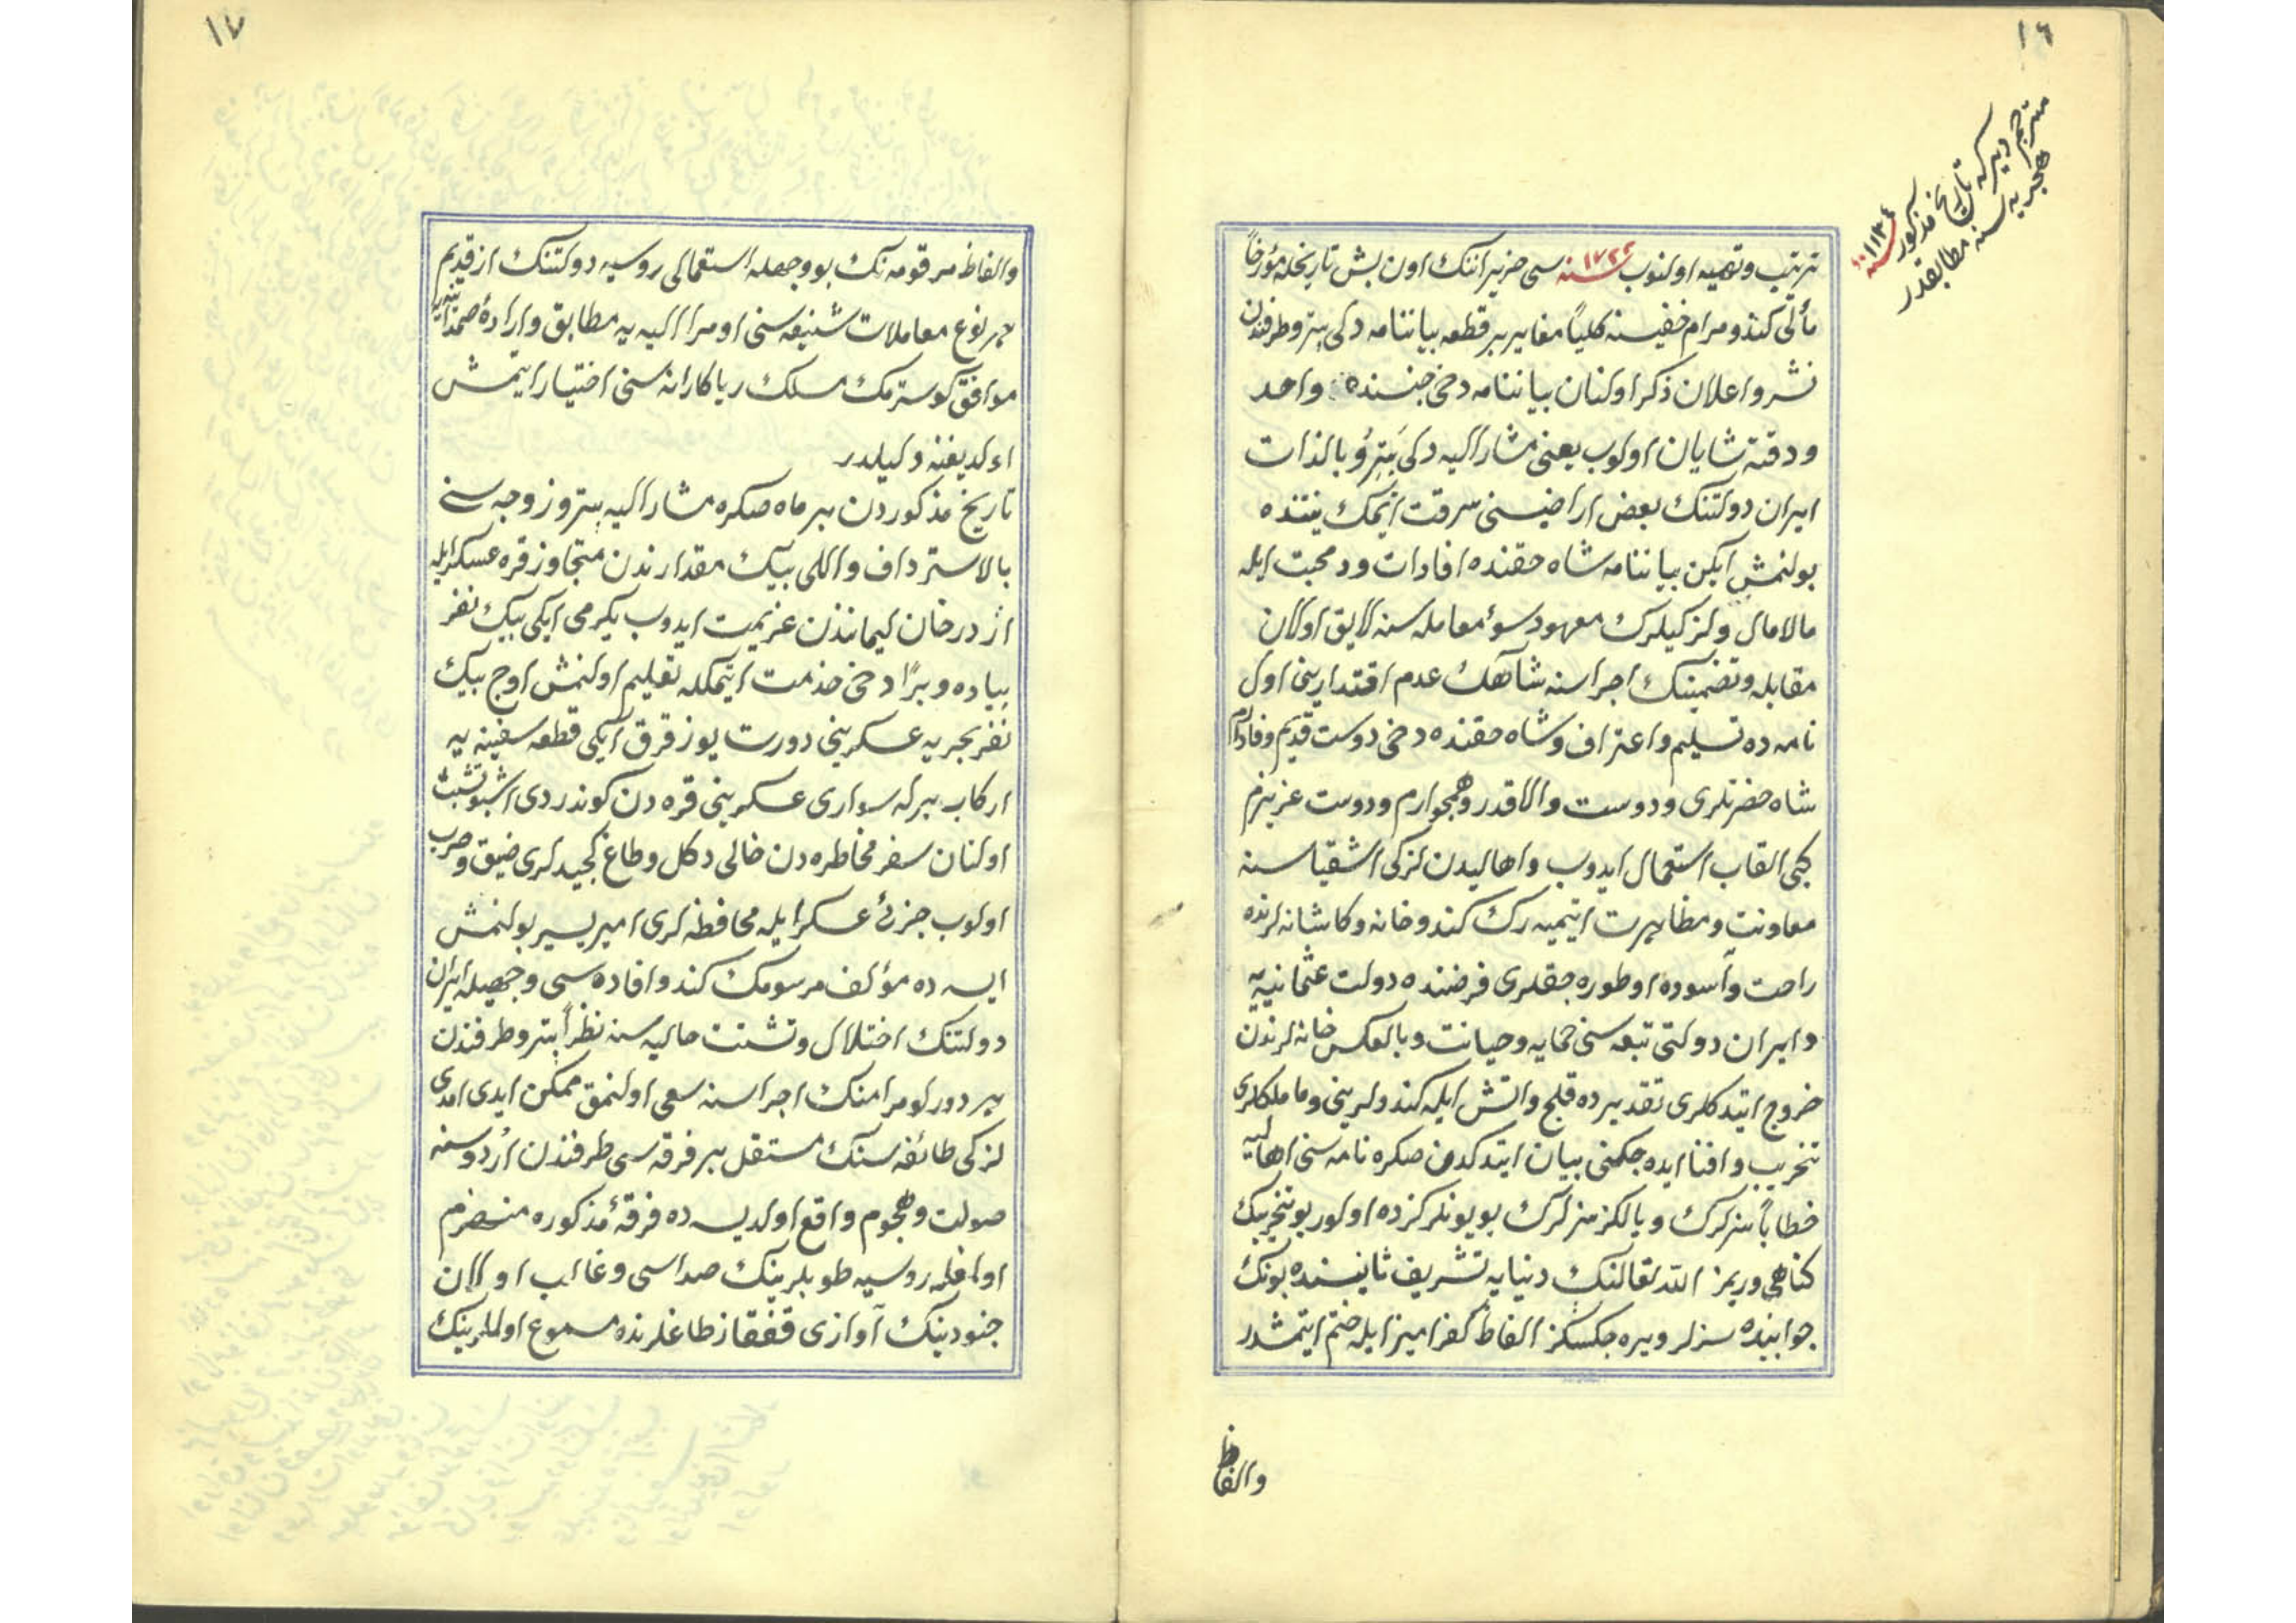 ١٦
مترجم دیر که تاریخ مذکور سنه ١١٣٤
هجریه سنه مطابقدر
ترتیب وتهیه اولنوب سنه ١٧٢٢ سی حزیراننك اون بش تاریخله مؤرخاً
مألی کندو مرام خفیسنه کلیاً مغایر بر قطعه بیاننامه دلی پترو طرفندن
نشر و اعلان ذکر اولنان بیاننامه دخی جنسنده واحد
ودقته شایان اولوب یعنی مشار الیه دلی پترو بالذات
ایران دولتنك بعض اراضیسنی سرقت ایتمك نیتنده
بولنمش ایکن بیاننامه شاه حقنده افادات ودمحبت ایله
مالامال ولزکیلرك معهود سوء معامله سنه لایق اولان
مقابله وتضمینك اجراسنه شاهك عدم اقتدارینی اول
نامه ده تسلیم واعتراف وشاه حقنده دخی دوست قدیم وفادارم
شاه حضرتلری ودوست والاقدر وهمجوارم ودوست عزیزم
کبی القاب استعمال ایدوب واهالیدن لزکی اشقیاسنه
معاونت ومظاهرت ایتمیه رك کندو خانه وکاشانه لرنده
راحت وآسوده اوطوره جقلری فرضنده دولت عثمانیه یه
وایران دولتی تبعه سنی حمایه وصیانت وبالعکس خانه لرندن
خروج ایتدکلری تقدیرده قلج واتش ایله کندولرینی وماملکلری
تخریب وافنا ایده جکنی بیان ایتدکدن صکره نامه سنی اهالیه
خطاباً سزلرك وبالکز سزلرك بویونلرکزده اولور بو تخریبك
کناهی وریمز الله تعالنك دنیایه تشریف ثانیسنده بونك
جوابنده سزلر ویره جکسکز الفاظ کفر امیز ایله ختم ایتمشدر
والفاظ
١٧
والفاظ مرقومه نك بو وجهله استعمالی روسیه دولتنك از قدیم
هر نوع معاملات شنیعه سنی اوامر الهیه یه مطابق وارادۀ صمدانیه یه
موافق کوسترمك مسلك ریاکارانه سنی اختیار ایتمش
اولدیغنه دلیلدر
تاریخ مذکوردن بر ماه صکره مشار الیه پترو زوجه سنی
بالاسترداف واللی بیك مقدارندن متجاوز قره عسکر ایله
اژدرخان لیماندن عزیمت ایدوب یکرمی ایکی بیك نفر
پیاده وبراً دخی خذمت ایتمکله تعلیم اولنمش اوچ بیك
نفر بحریه عسکرینی دورت یوز قرق ایکی قطعه سفینه یه
ارکاب برله سواری عسکرینی قره دن کوندردی اشبو تشبث
اولنان سفر مخاطره دن خالی دکل وطاغ کچیدلری ضیق وصرب
اولوب جزئی عسکر ایله محافظه لری امر یسیر بولنمش
ایسه ده مؤلف مرسومك کندو افاده سی وجهیله ایران
دولتنك اختلال وتشتت حالیه سنه نظراً پترو طرفندن
هر دورلو مرامنك اجراسنه سعی اولنمق ممکن ایدی امدی
لزکی طائفه سنك مستقل بر فرقه سی طرفندن اردوسنه
صولت وهجوم واقع اولدیسه ده فرقۀ مذکوره منهزم
اولمغله روسیه طوپلرینك صداسی وغالب اولان
جنودینك آوازی قفقاز طاغلرنده مسموع اولملرینك